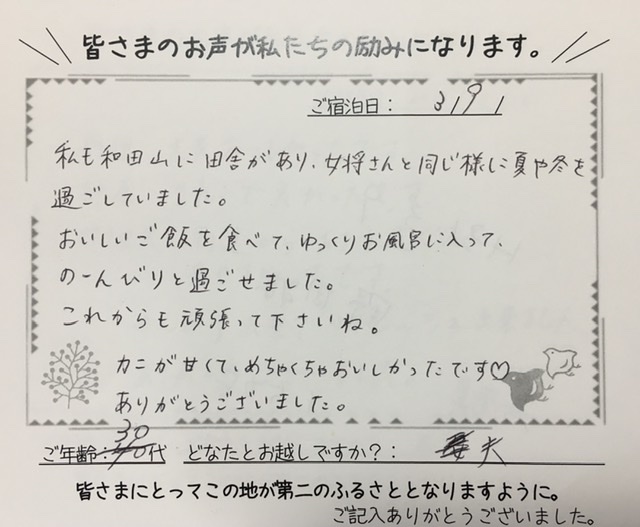 皆さまのお声が私たちの励みになります。
ご宿泊日： 31 9 1
私も和田山に田舎があり、女将さんと同じ様に夏や冬を
過ごしていました。
おいしいご飯を食べて、ゆっくりお風呂に入って、
のーんびりと過ごせました。
これからも頑張って下さいね。
カニが甘くて、めちゃくちゃおいしかったです♡
ありがとうございました。
ご年齢： 30代 どなたとお越しですか？： 夫
皆さまにとってこの地が第二のふるさととなりますように。
ご記入ありがとうございました。